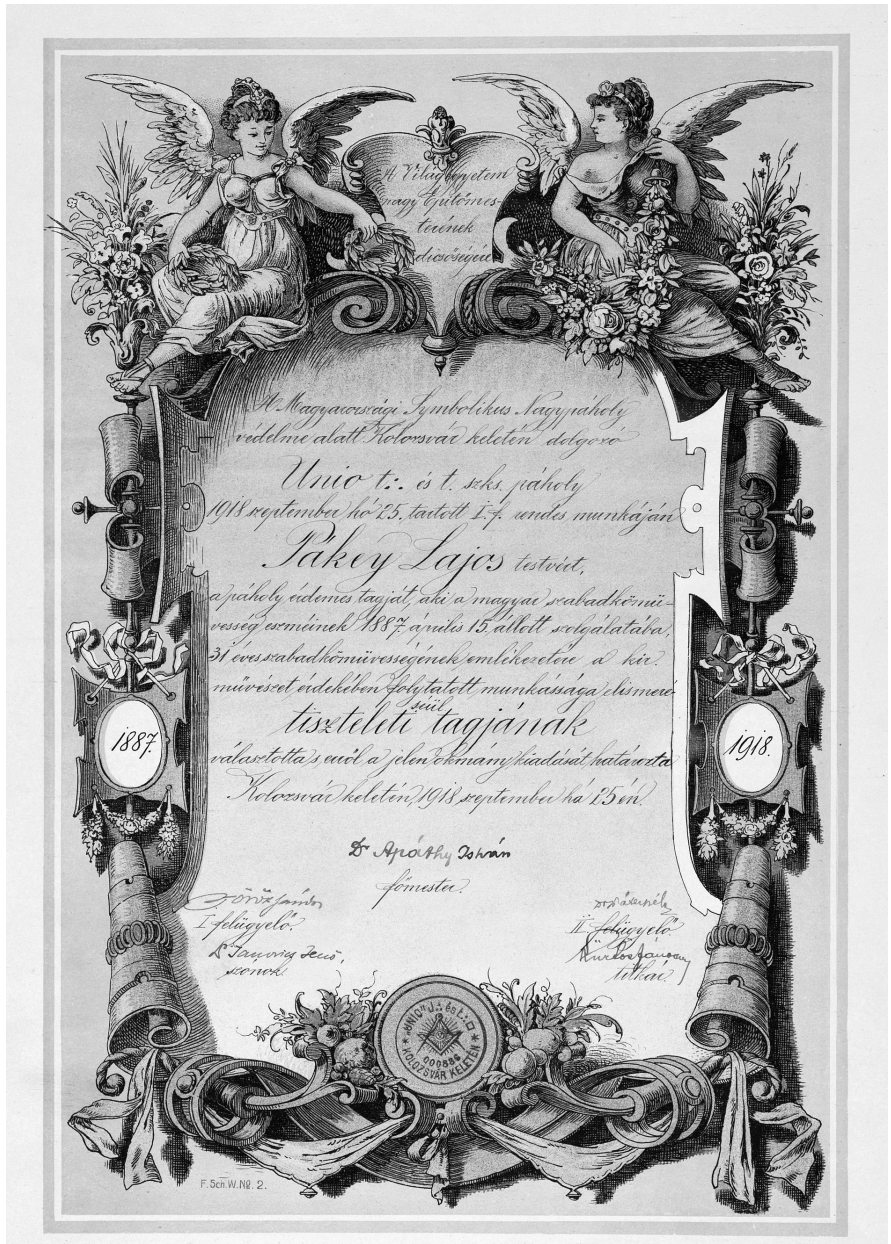 A Világegyetem
nagy Építőmes-
terének
dicsőségére
A Magyarországi Symbolikus Nagypáholy
védelme alatt Kolozsvár keletén dolgozó
Unio t∴ és t. szks. páholy
1918 szeptember hó 25. tartott I. f. rendes munkáján
Pákey Lajos testvért,
a páholy érdemes tagját, aki a magyar szabadkömü-
vesség eszméinek 1887. április 15. állott szolgálatába,
31 éves szabadkömüvességének emlékezetére a kir.
müvészet érdekében folytatott munkássága elismeré-
séül
tiszteleti tagjának
választotta s erről a jelen okmány kiadását határozta
Kolozsvár keletén, 1918 szeptember hó 25 én.
1887.
1918.
Dr Apáthy István
főmester.
I. felügyelő.
II felügyelő
Dr Janovics Jenő,
szónok
titkár.
"UNIO" J. és t.
KOLOZSVÁR KELETÉN
000886
F. Sch. W. № 2.